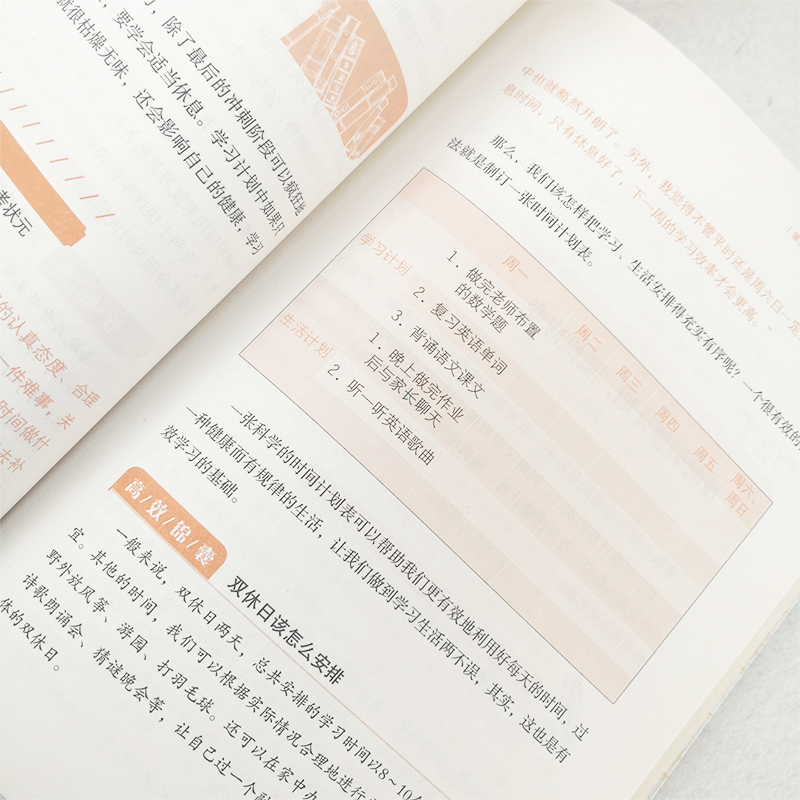 ，除了最后的冲刺阶段可以疯狂地
，要学会适当休息。学习计划中如果只
就很枯燥无味，还会影响自己的健康，学习
考状元
的认真态度、合理
一件难事，关
时间做什
去补
中也就豁然开朗了。另外，我觉得不管平时还是周六日一定
息时间，只有休息好了，下一周的学习效率才会更高。”
那么，我们该怎样把学习、生活安排得充实有序呢？一个很有效的
法就是制订一张时间计划表。
周一 周二 周三 周四 周五 周六、
周日
学习计划
1. 做完老师布置
的数学题
2. 复习英语单词
3. 背诵语文课文
生活计划
1. 晚上做完作业
后与家长聊天
2. 听一听英语歌曲
一张科学的时间计划表可以帮助我们更有效地利用好每天的时间，过
一种健康而有规律的生活，让我们做到学习生活两不误，其实，这也是有
效学习的基础。
高/效/锦/囊
双休日该怎么安排
一般来说，双休日两天，总共安排的学习时间以8～10
宜。其他的时间，我们可以根据实际情况合理地进行
野外放风筝、游园、打羽毛球。还可以在家中办
诗歌朗诵会、猜谜晚会等，让自己过一个
体的双休日。